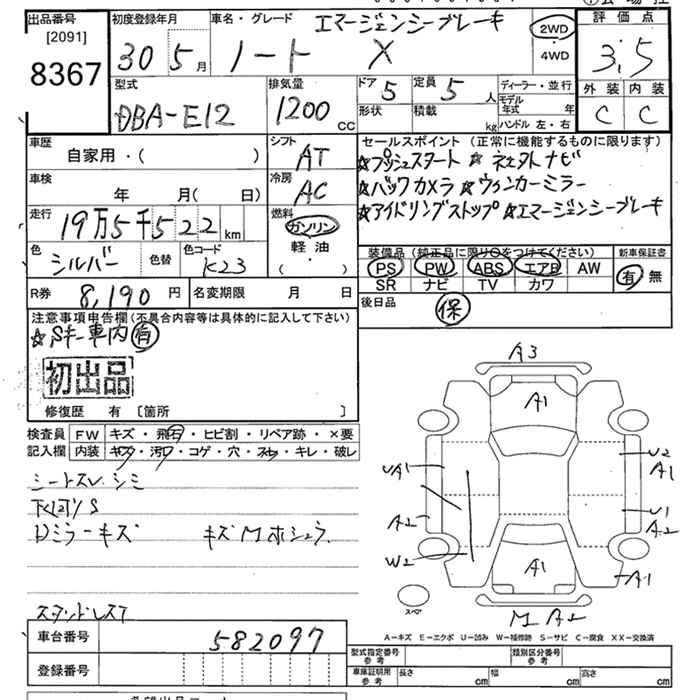 出品番号
[2091]
8367
初度登録年月
30 5月
車名・グレード
エマージェンシーブレーキ
ノート X
2WD
・
4WD
評価点
3.5
外装 内装
C C
型式
DBA-E12
排気量
1200
CC
ドア 5
定員 5 人
形状
積載 kg
ディーラー・並行
モデル年式 年
ハンドル 左・右
車歴
自家用・( )
シフト
AT
車検
年 月( 日)
冷房
AC
走行
19万5千522 km
燃料
ガソリン
軽油
・
( )
色
シルバー
色替
色コード
K23
セールスポイント (正常に機能するものに限ります)
☆プッシュスタート ☆社外ナビ
☆バックカメラ ☆ウィンカーミラー
☆アイドリングストップ ☆エマージェンシーブレーキ
装備品 (純正品に限り○をつけてください)
新車保証書
PS PW ABS エアB AW
SR ナビ TV カワ
有 無
R券 8,190 円
名変期限 月 日
後日品
保
注意事項申告欄 (不具合内容等は具体的に記入して下さい)
☆Sキー車内有
初出品
修復歴 有 〔箇所 〕
検査員記入欄
FW キズ・飛石・ヒビ割・リペア跡・×要
内装 キズ・汚れ・コゲ・穴・スレ・キレ・破レ
シートスレ シミ
下廻りS
Dミラーキズ キズMホシュウ
スタッドレス7
車台番号 582097
登録番号
A3
A1
UA1
A2
W2
U2
A1
U1
A2
A1
A1
M A2
スペア
A－キズ E－エクボ U－凹み W－補修跡 S－サビ C－腐食 XX－交換済
型式指定番号
参考
類別区分番号
参考
車庫証明用
参考
長さ cm
幅 cm
高さ cm